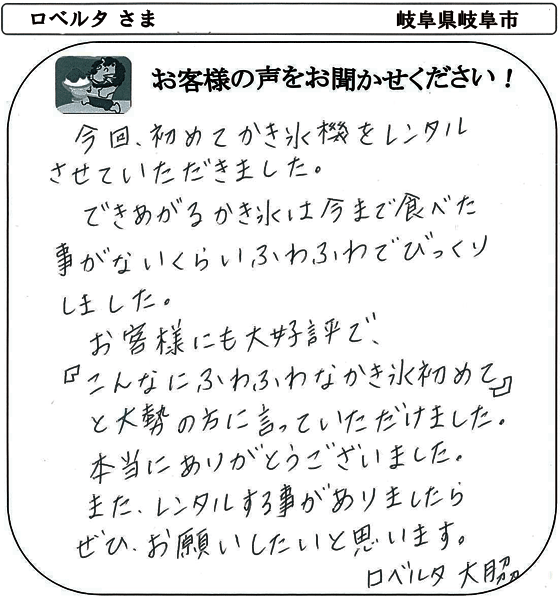 ロベルタ さま 岐阜県岐阜市
お客様の声をお聞かせください！
今回、初めてかき氷機をレンタル
させていただきました。
できあがるかき氷は今まで食べた
事がないくらいふわふわでびっくり
しました。
お客様にも大好評で、
『こんなにふわふわなかき氷初めて』
と大勢の方に言っていただけました。
本当にありがとうございました。
また、レンタルする事がありましたら
ぜひ、お願いしたいと思います。
ロベルタ 大脇